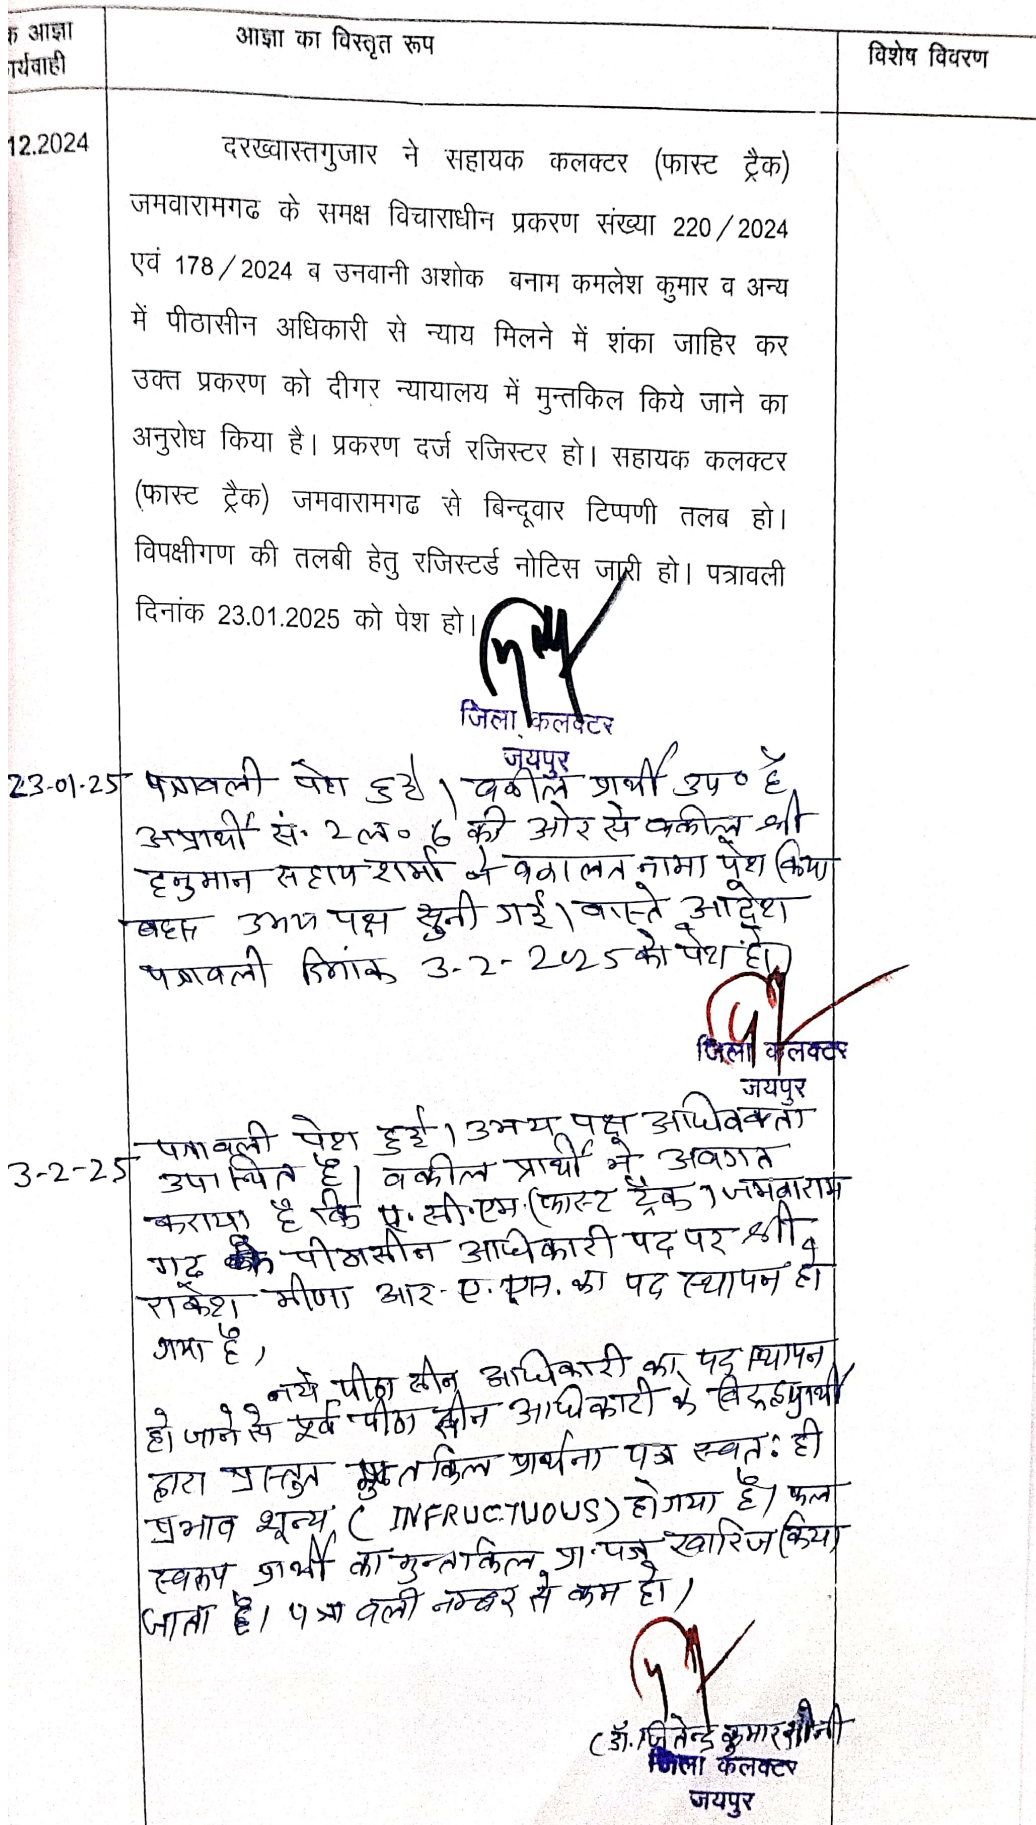 क आज्ञा
र्यवाही
आज्ञा का विस्तृत रूप
विशेष विवरण
12.2024
दरख्वास्तगुजार ने सहायक कलक्टर (फास्ट ट्रैक)
जमवारामगढ के समक्ष विचाराधीन प्रकरण संख्या 220/2024
एवं 178/2024 ब उनवानी अशोक बनाम कमलेश कुमार व अन्य
में पीठासीन अधिकारी से न्याय मिलने में शंका जाहिर कर
उक्त प्रकरण को दीगर न्यायालय में मुन्तकिल किये जाने का
अनुरोध किया है। प्रकरण दर्ज रजिस्टर हो। सहायक कलक्टर
(फास्ट ट्रैक) जमवारामगढ से बिन्दूवार टिप्पणी तलब हो।
विपक्षीगण की तलबी हेतु रजिस्टर्ड नोटिस जारी हो। पत्रावली
दिनांक 23.01.2025 को पेश हो।
जिला कलक्टर
जयपुर
23-01-25 पत्रावली पेश हुई। वकील प्रार्थी उप० है,
अप्रार्थी सं. 2 ल० 6 की ओर से वकील श्री
हनुमान सहाय शर्मा ने वकालतनामा पेश किया
बहस उभय पक्ष सुनी गई। वास्ते आदेश
पत्रावली दिनांक 3-2-2025 को पेश हो।
जिला कलक्टर
जयपुर
पत्रावली पेश हुई। उभय पक्ष अधिवक्ता
3-2-25 उपस्थित है। वकील प्रार्थी ने अवगत
कराया है कि ए.सी.एम. (फास्ट ट्रैक) जमवाराम
गढ़ के पीठासीन अधिकारी पद पर श्री
राकेश मीणा आर.ए.एस. का पद स्थापन हो
गया है।
नये पीठासीन अधिकारी का पद स्थापन
हो जाने से पूर्व पीठासीन अधिकारी के विरूद्ध प्रार्थी
द्वारा प्रस्तुत मुन्तकिल प्रार्थना पत्र स्वतः ही
प्रभाव शून्य (INFRUCTUOUS) हो गया है। फल
स्वरूप प्रार्थी का मुन्तकिल प्रा.पत्र खारिज किया
जाता है। पत्रावली नम्बर से कम हो।
(डॉ. जितेन्द्र कुमार सोनी
जिला कलक्टर
जयपुर